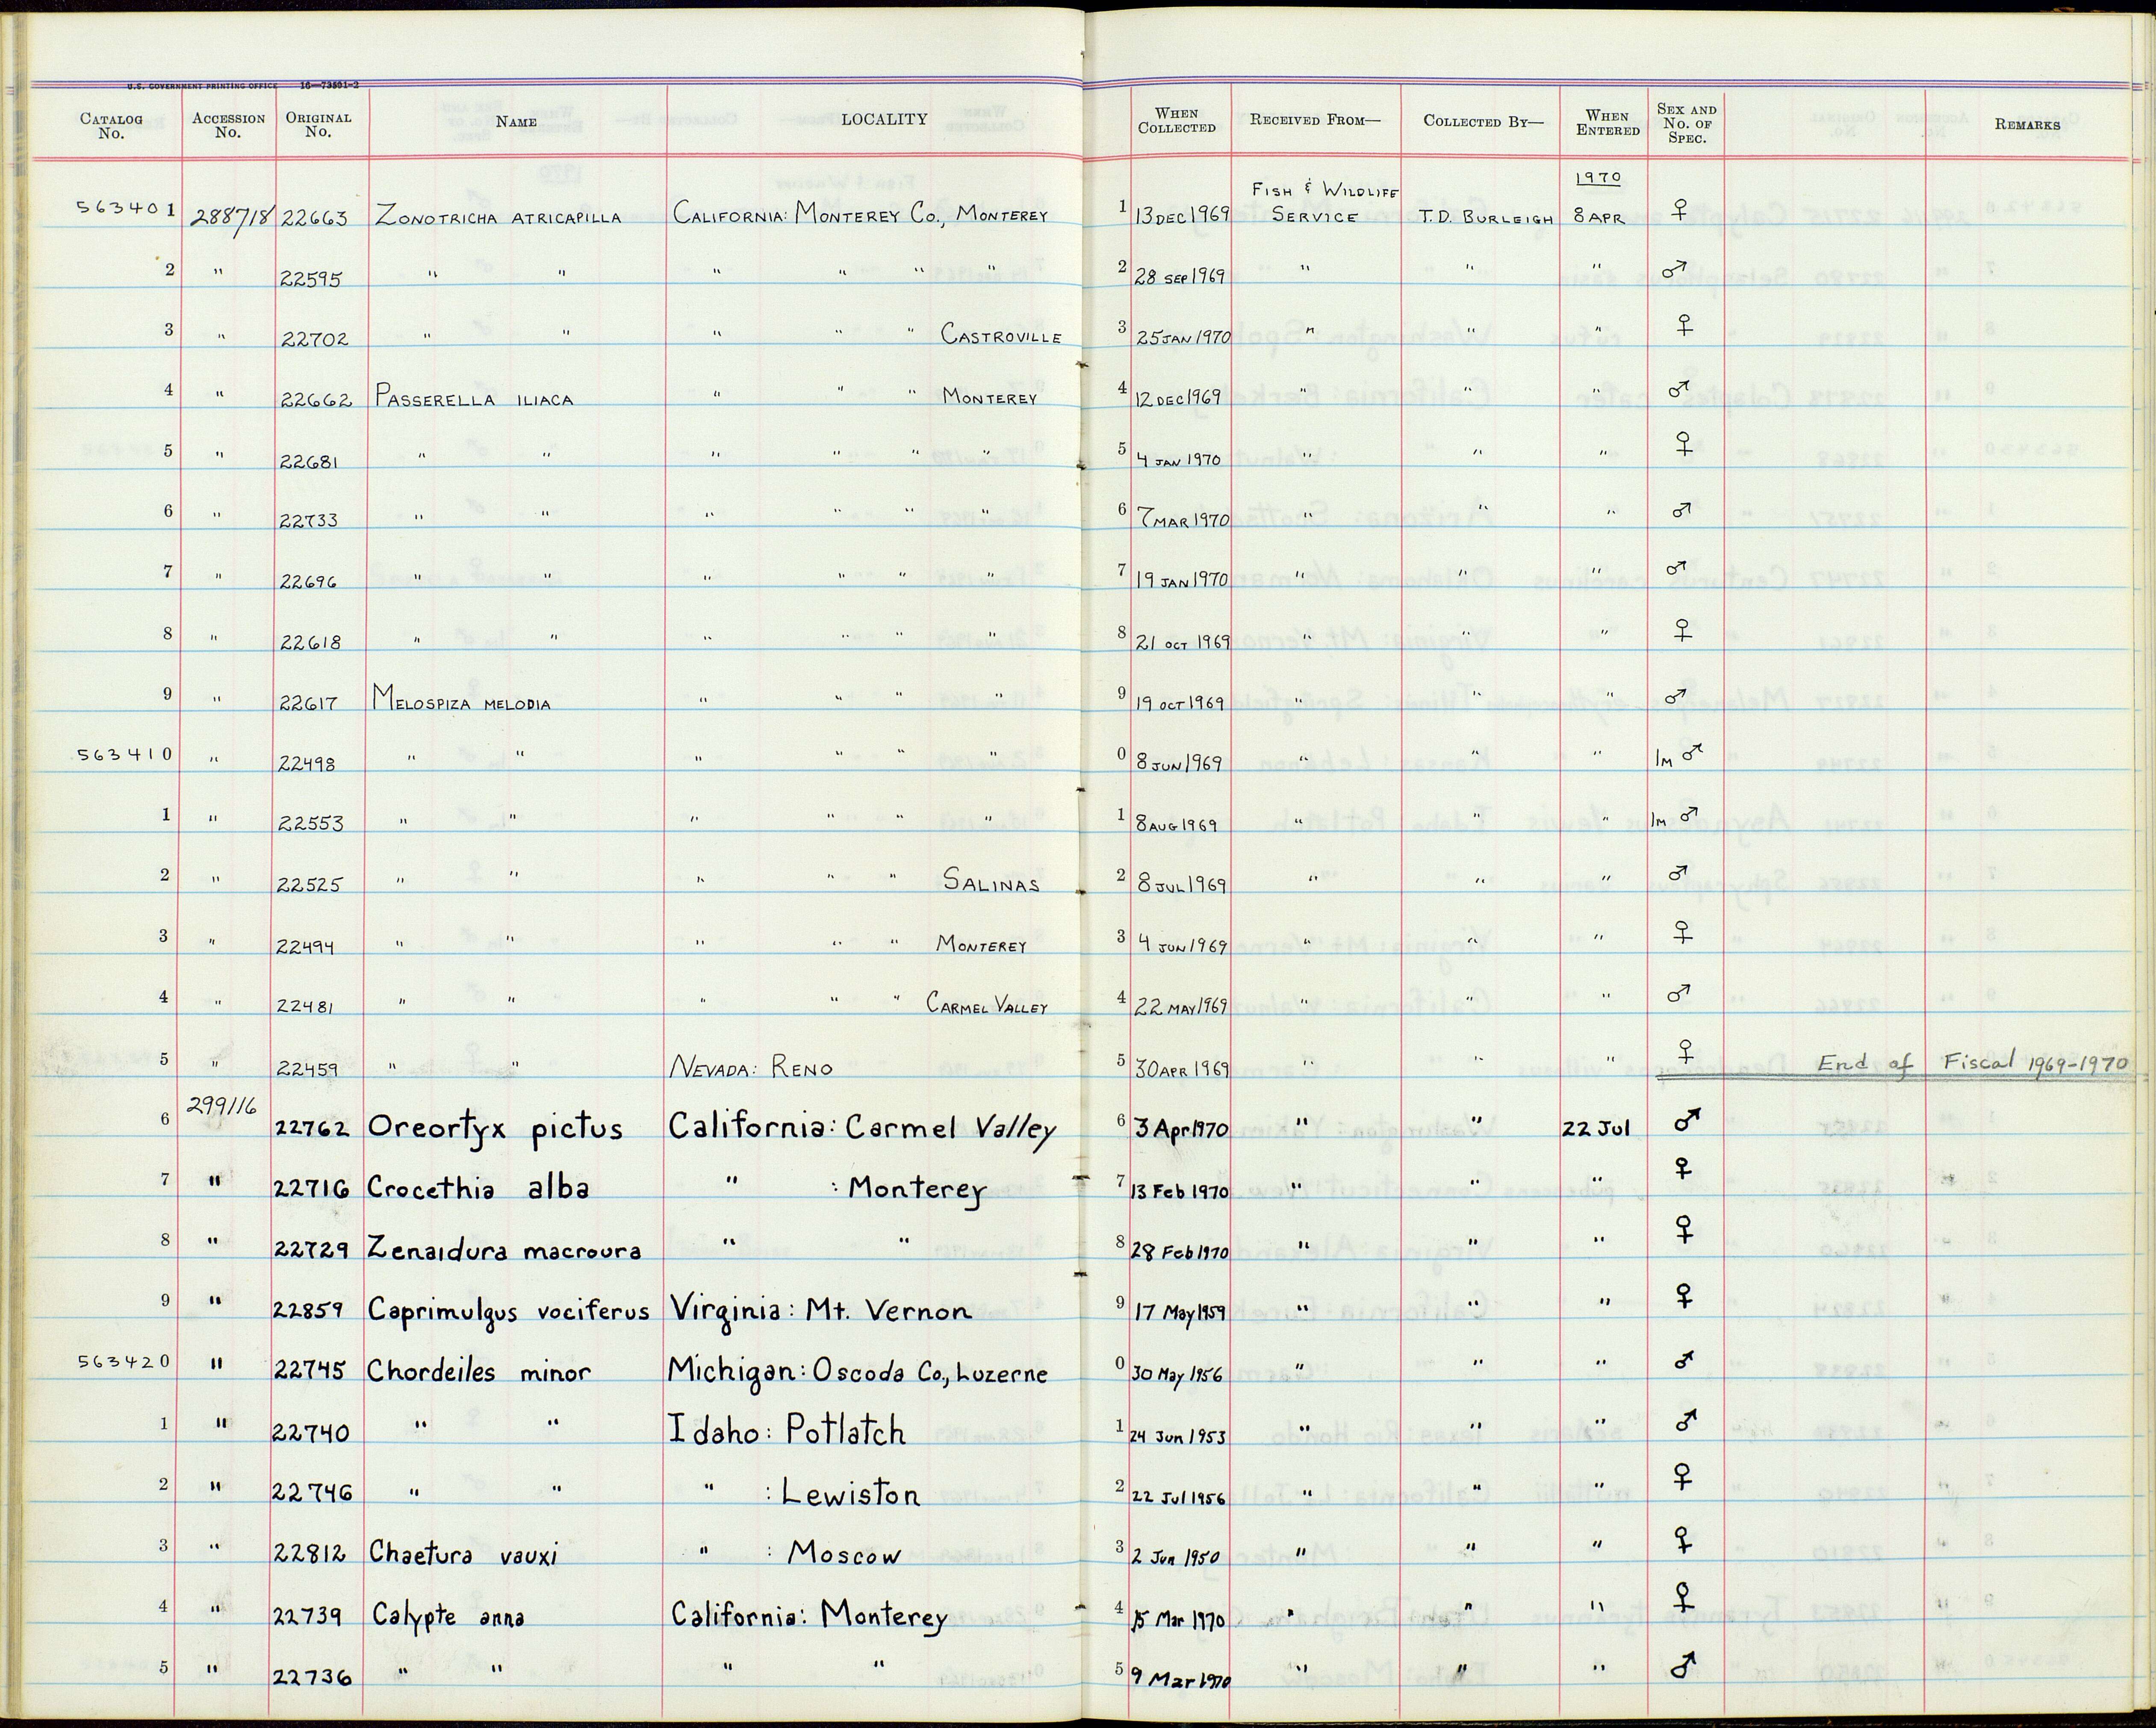 U.S. GOVERNMENT PRINTING OFFICE 16—73591-2
CATALOG No. ACCESSION No. ORIGINAL No. NAME LOCALITY WHEN COLLECTED RECEIVED FROM— COLLECTED BY— WHEN ENTERED SEX AND No. OF SPEC. REMARKS
563401 288718 22663 ZONOTRICHA ATRICAPILLA CALIFORNIA: MONTEREY CO., MONTEREY 1 13 DEC 1969 FISH & WILDLIFE SERVICE T.D. BURLEIGH 1970 8 APR ♀
2 " 22595 " " " " " " 2 28 SEP 1969 " " " ♂
3 " 22702 " " " " " CASTROVILLE 3 25 JAN 1970 " " " ♀
4 " 22662 PASSERELLA ILIACA " " " MONTEREY 4 12 DEC 1969 " " " ♂
5 " 22681 " " " " " " 5 4 JAN 1970 " " " ♀
6 " 22733 " " " " " " 6 7 MAR 1970 " " " ♂
7 " 22696 " " " " " " 7 19 JAN 1970 " " " ♂
8 " 22618 " " " " " " 8 21 OCT 1969 " " " ♀
9 " 22617 MELOSPIZA MELODIA " " " " 9 19 OCT 1969 " " " ♂
563410 " 22498 " " " " " " 0 8 JUN 1969 " " " IM ♂
1 " 22553 " " " " " " 1 8 AUG 1969 " " " IM ♂
2 " 22525 " " " " " SALINAS 2 8 JUL 1969 " " " ♂
3 " 22494 " " " " " MONTEREY 3 4 JUN 1969 " " " ♀
4 " 22481 " " " " " CARMEL VALLEY 4 22 MAY 1969 " " " ♂
5 " 22459 " " NEVADA: RENO 5 30 APR 1969 " " " ♀ End of Fiscal 1969-1970
6 299116 22762 Oreortyx pictus California: Carmel Valley 6 3 Apr 1970 " " 22 Jul ♂
7 " 22716 Crocethia alba " : Monterey 7 13 Feb 1970 " " " ♀
8 " 22729 Zenaidura macroura " " 8 28 Feb 1970 " " " ♀
9 " 22859 Caprimulgus vociferus Virginia: Mt. Vernon 9 17 May 1959 " " " ♀
563420 " 22745 Chordeiles minor Michigan: Oscoda Co., Luzerne 0 30 May 1956 " " " ♂
1 " 22740 " " Idaho: Potlatch 1 24 Jun 1953 " " " ♂
2 " 22746 " " " : Lewiston 2 22 Jul 1956 " " " ♀
3 " 22812 Chaetura vauxi " : Moscow 3 2 Jun 1950 " " " ♀
4 " 22739 Calypte anna California: Monterey 4 15 Mar 1970 " " " ♀
5 " 22736 " " " " 5 9 Mar 1970 " " " ♂